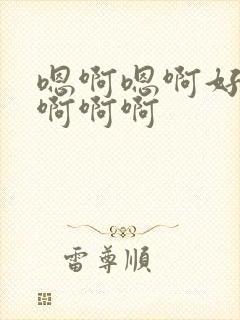 嗯啊嗯啊好
啊啊啊
雷尊順